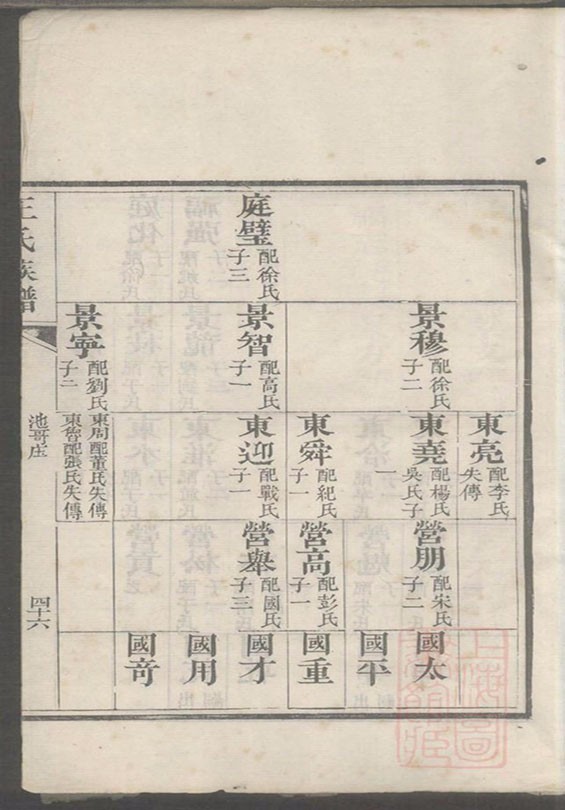 庭璧 配徐氏 子三
景穆 配徐氏 子二
景智 配高氏 子一
景寧 配劉氏 子二
東亮 配李氏 失傳
東堯 配楊氏 吳氏子一
東舜 配紀氏 子一
東迎 配戰氏 子一
東周配董氏失傳
東魯配張氏失傳
營朋 配宋氏 子二
營高 配彭氏 子一
營舉 配國氏 子三
國太
國平
國重
國才
國用
國奇
王氏族譜
池哥庄
四十六